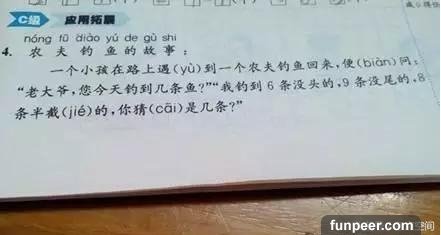 C级 应用拓展
nóng fū diào yú de gù shi
4. 农夫钓鱼的故事：
一个小孩在路上遇(yù)到一个农夫钓鱼回来，便(biàn)问：
“老大爷，您今天钓到几条鱼？”“我钓到 6 条没头的，9 条没尾的，8
条半截(jié)的，你猜(cāi)是几条？”
funpeer.com